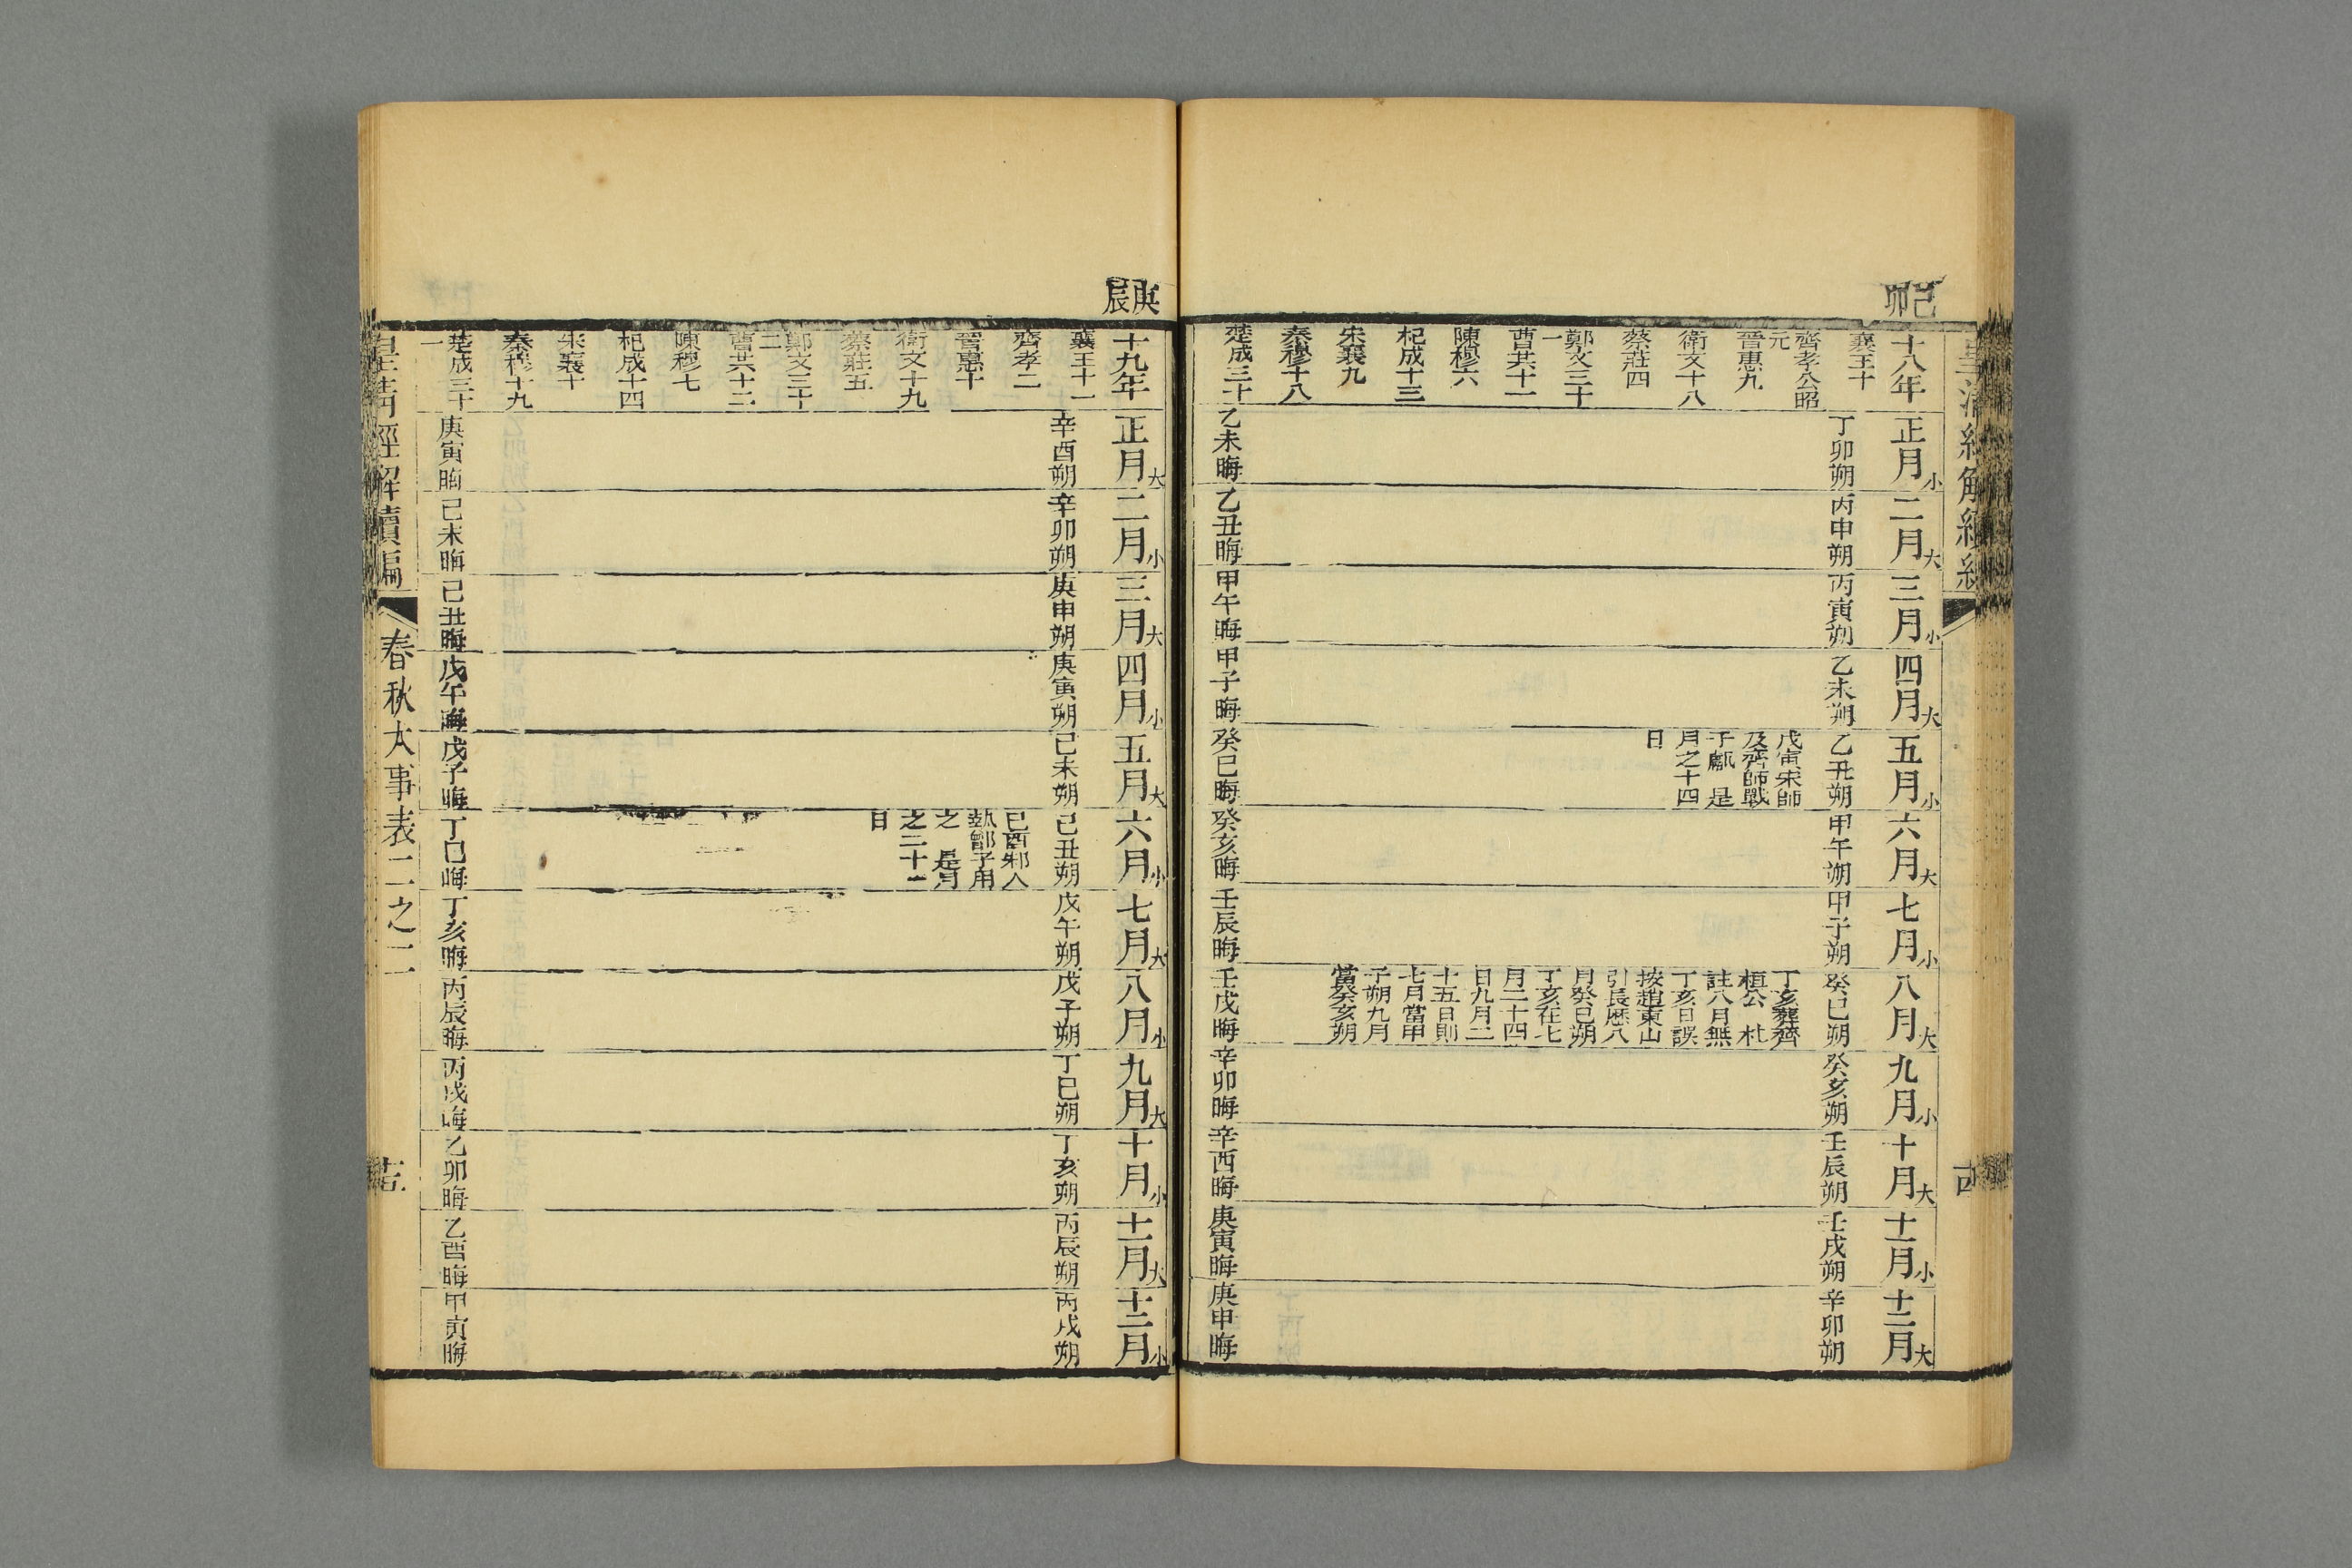 己卯
十八年
襄王十
齊孝公昭
元
晉惠九
衛文十八
蔡莊四
鄭文三十
一
曹共十一
陳穆六
杞成十三
宋襄九
秦穆十八
楚成三十
正月小
丁卯朔
乙未晦
二月大
丙申朔
乙丑晦
三月小
丙寅朔
甲午晦
四月大
乙未朔
甲子晦
五月小
乙丑朔
戊寅宋師
及齊師戰
于甗 是
月之十四
日
癸巳晦
六月大
甲午朔
癸亥晦
七月小
甲子朔
壬辰晦
八月大
癸巳朔
丁亥葬齊
桓公 杜
註八月無
丁亥日誤
按趙東山
引長歷八
月癸巳朔
丁亥在七
月二十四
日九月二
十五日則
七月當甲
子朔九月
當癸亥朔
壬戌晦
九月小
癸亥朔
辛卯晦
十月大
壬辰朔
辛酉晦
十一月小
壬戌朔
庚寅晦
十二月大
辛卯朔
庚申晦
庚辰
十九年
襄王十一
齊孝二
晉惠十
衛文十九
蔡莊五
鄭文三十
二
曹共十二
陳穆七
杞成十四
宋襄十
秦穆十九
楚成三十
一
正月大
辛酉朔
庚寅晦
二月小
辛卯朔
己未晦
三月大
庚申朔
己丑晦
四月小
庚寅朔
戊午晦
五月大
己未朔
戊子晦
六月小
己丑朔
己酉邾人
執鄫子用
之 是月
之二十一
日
丁巳晦
七月大
戊午朔
丁亥晦
八月小
戊子朔
丙辰晦
九月大
丁巳朔
丙戌晦
十月小
丁亥朔
乙卯晦
十一月大
丙辰朔
乙酉晦
十二月小
丙戌朔
甲寅晦
皇清經解續編 春秋大事表二之二